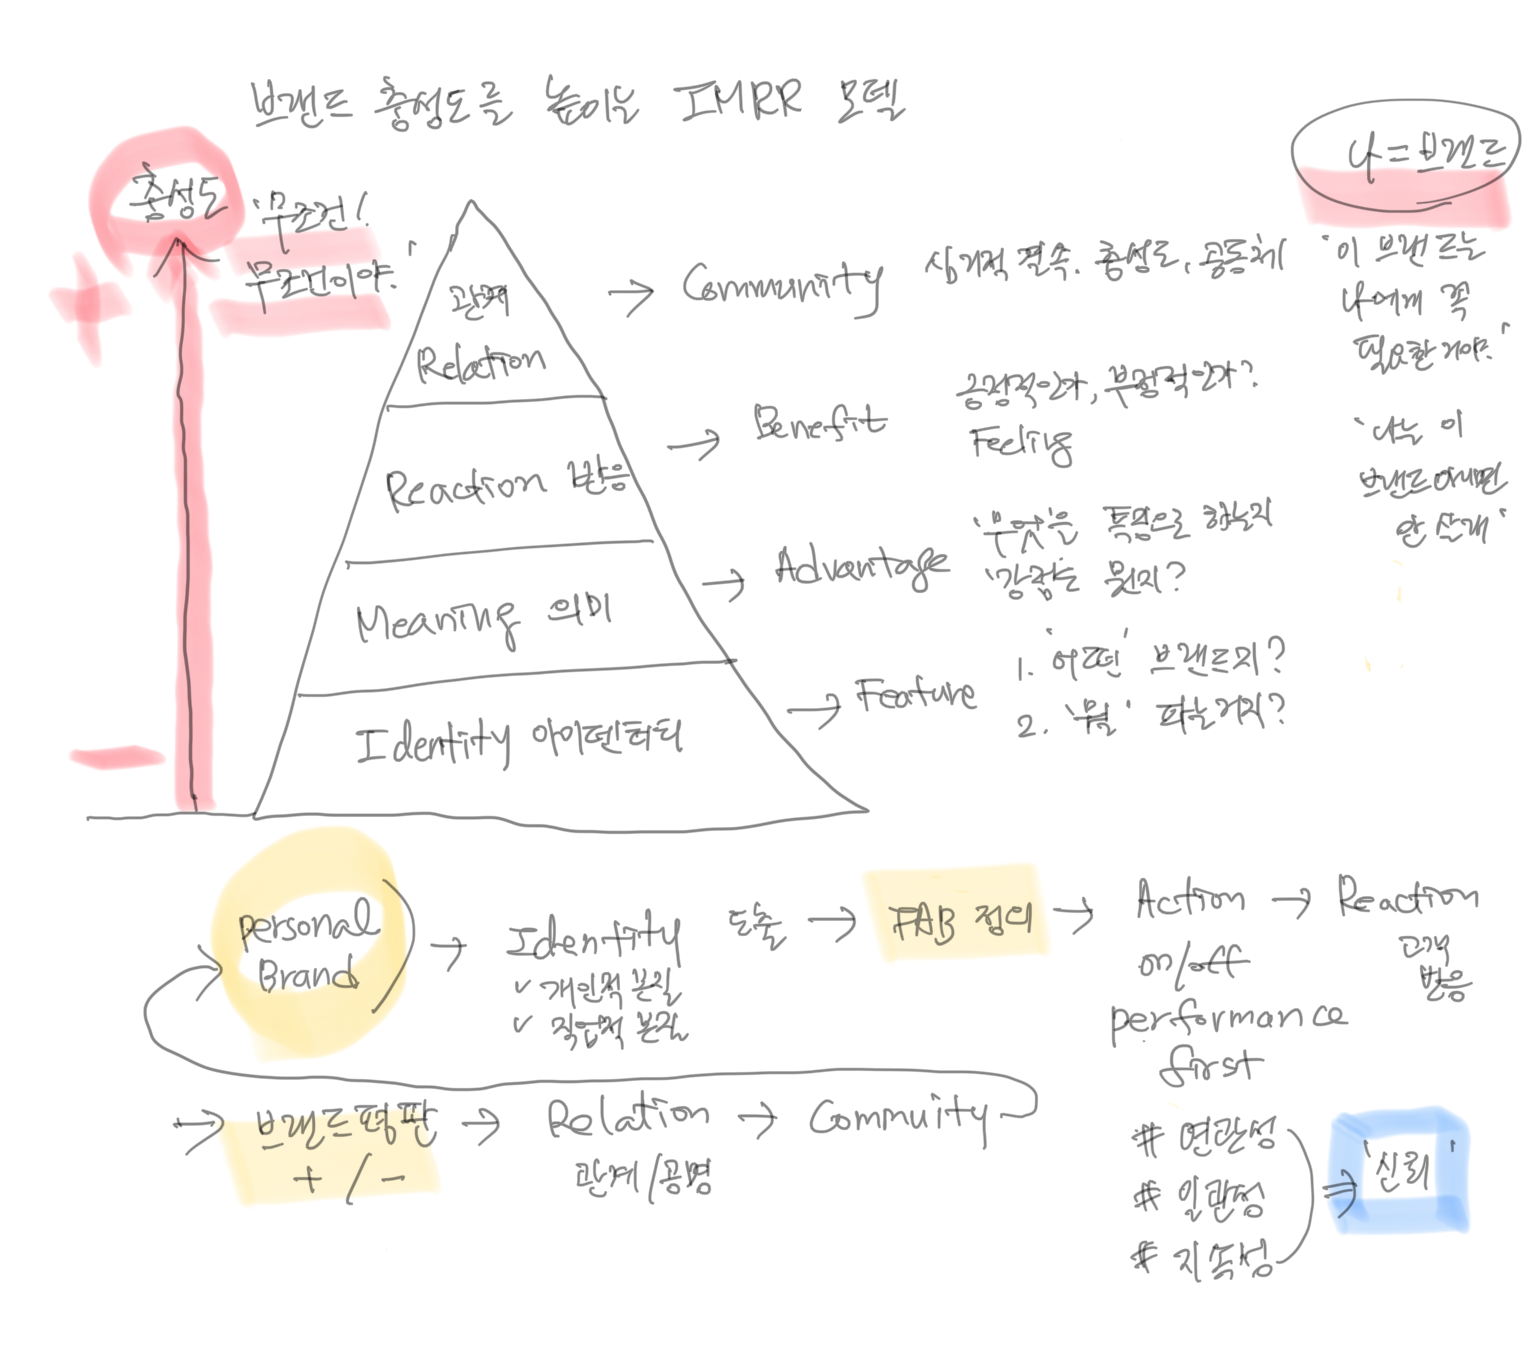 브랜드 충성도를 높이는 IMRR 모델
나=브랜드
충성도
'무조건!
무조건이야.'
+
-
관계
Relation
→ Community
심리적 결속. 충성도, 공동체
'이 브랜드는
나에게 꼭
필요할거야.'
Reaction 반응
→ Benefit
긍정적인가, 부정적인가?
Feeling
'나는 이
브랜드아니면
안 산래'
Meaning 의미
→ Advantage
'무엇'을 특징으로 하는지
'강점'는 뭔지?
Identity 아이덴터티
→ Feature
1. '어떤' 브랜드지?
2. '뭘' 파는거지?
personal
Brand
→ Identity 도출 → FAB 정의 → Action → Reaction
✓ 개인적 본질
✓ 직업적 본질
on/off
performance
first
고객
반응
→ 브랜드평판 → Relation → Commuity
+ / -
관계/공명
# 연관성
# 일관성
# 지속성
⇒ '신뢰'